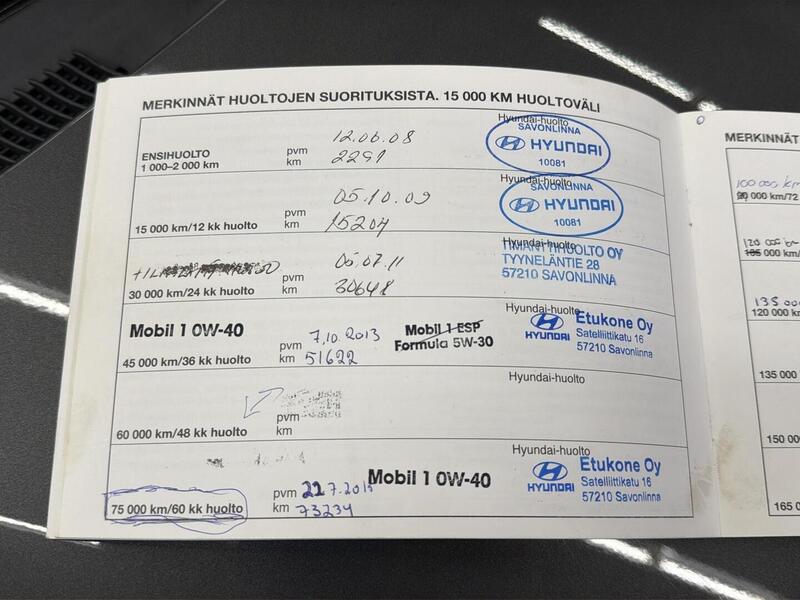 MERKINNÄT HUOLTOJEN SUORITUKSISTA. 15 000 KM HUOLTOVÄLI
ENSIHUOLTO
1 000–2 000 km
pvm 12.06.08
km 2291
Hyundai-huolto
SAVONLINNA
HYUNDAI
10081
15 000 km/12 kk huolto
pvm 05.10.09
km 15204
Hyundai-huolto
SAVONLINNA
HYUNDAI
10081
30 000 km/24 kk huolto
pvm 05.07.11
km 30648
Hyundai-huolto
TIMANTTIHUOLTO OY
TYYNELÄNTIE 28
57210 SAVONLINNA
Mobil 1 0W-40
45 000 km/36 kk huolto
pvm 7.10.2013
km 51622
Mobil 1 ESP
Formula 5W-30
Hyundai-huolto
HYUNDAI
Etukone Oy
Satelliittikatu 16
57210 Savonlinna
60 000 km/48 kk huolto
pvm
km
Hyundai-huolto
75 000 km/60 kk huolto
pvm 22.7.2015
km 73234
Mobil 1 0W-40
Hyundai-huolto
HYUNDAI
Etukone Oy
Satelliittikatu 16
57210 Savonlinna
MERKINNÄT
100 000 km
90 000 km/72
120 000 km
105 000 km/
135 000
120 000 km/
135 000
150 000
165 000